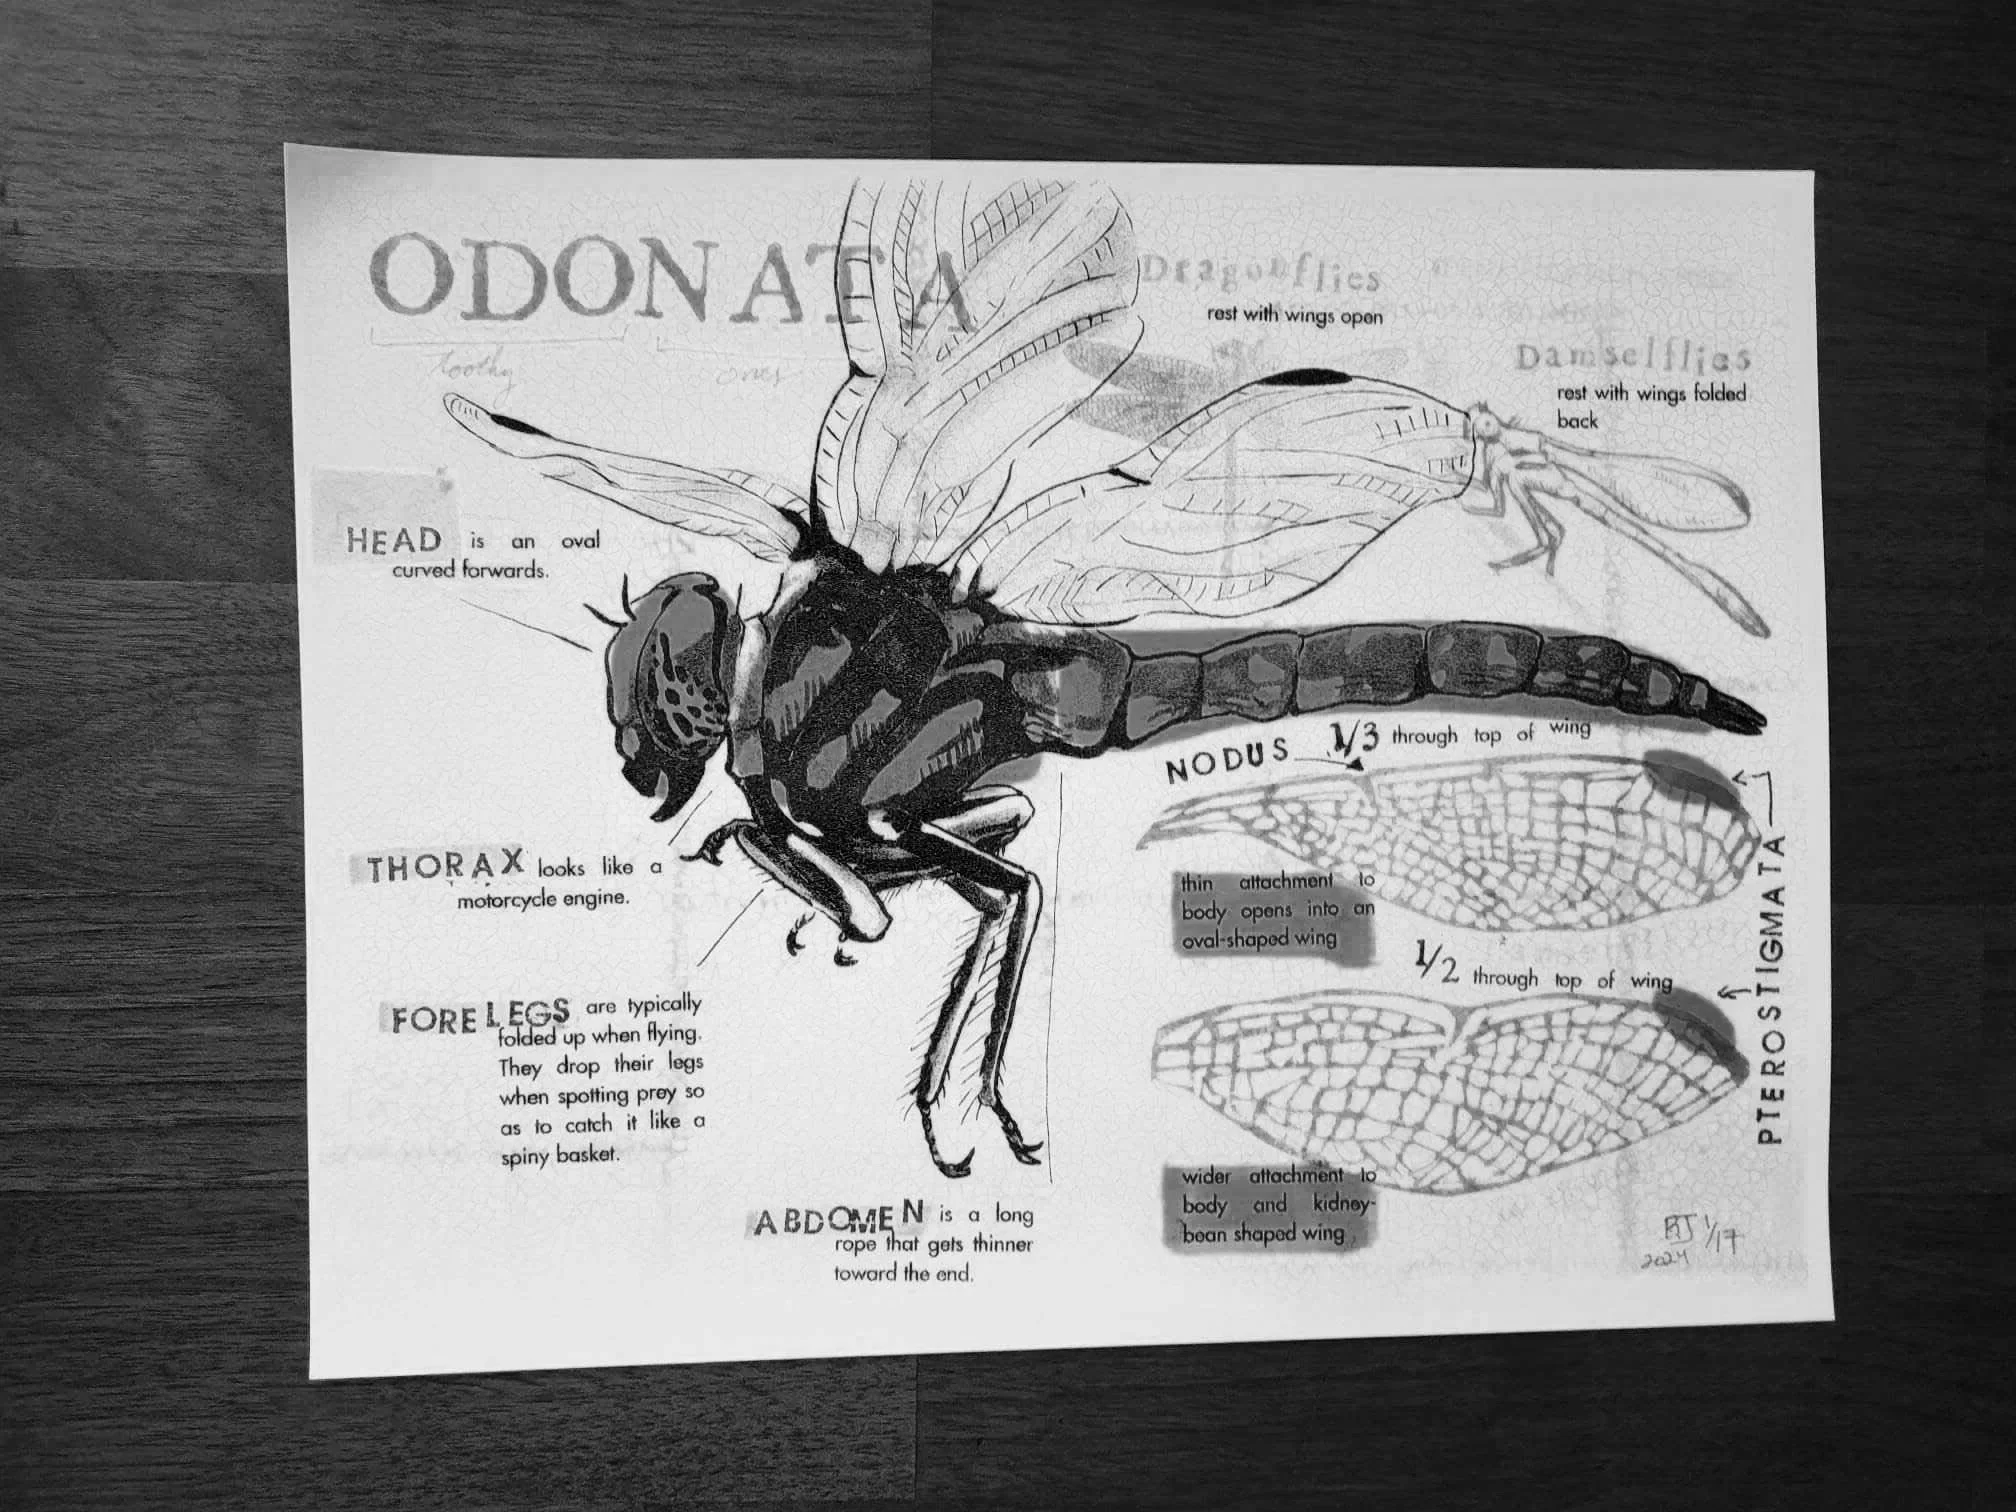 ODONATA
toothy ones
Dragonflies
rest with wings open
Damselflies
rest with wings folded
back
HEAD is an oval
curved forwards.
THORAX looks like a
motorcycle engine.
FORELEGS are typically
folded up when flying.
They drop their legs
when spotting prey so
as to catch it like a
spiny basket.
ABDOMEN is a long
rope that gets thinner
toward the end.
NODUS 1/3 through top of wing
thin attachment to
body opens into an
oval-shaped wing
1/2 through top of wing
PTEROSTIGMATA
wider attachment to
body and kidney-
bean shaped wing
RJ 1/17
2024